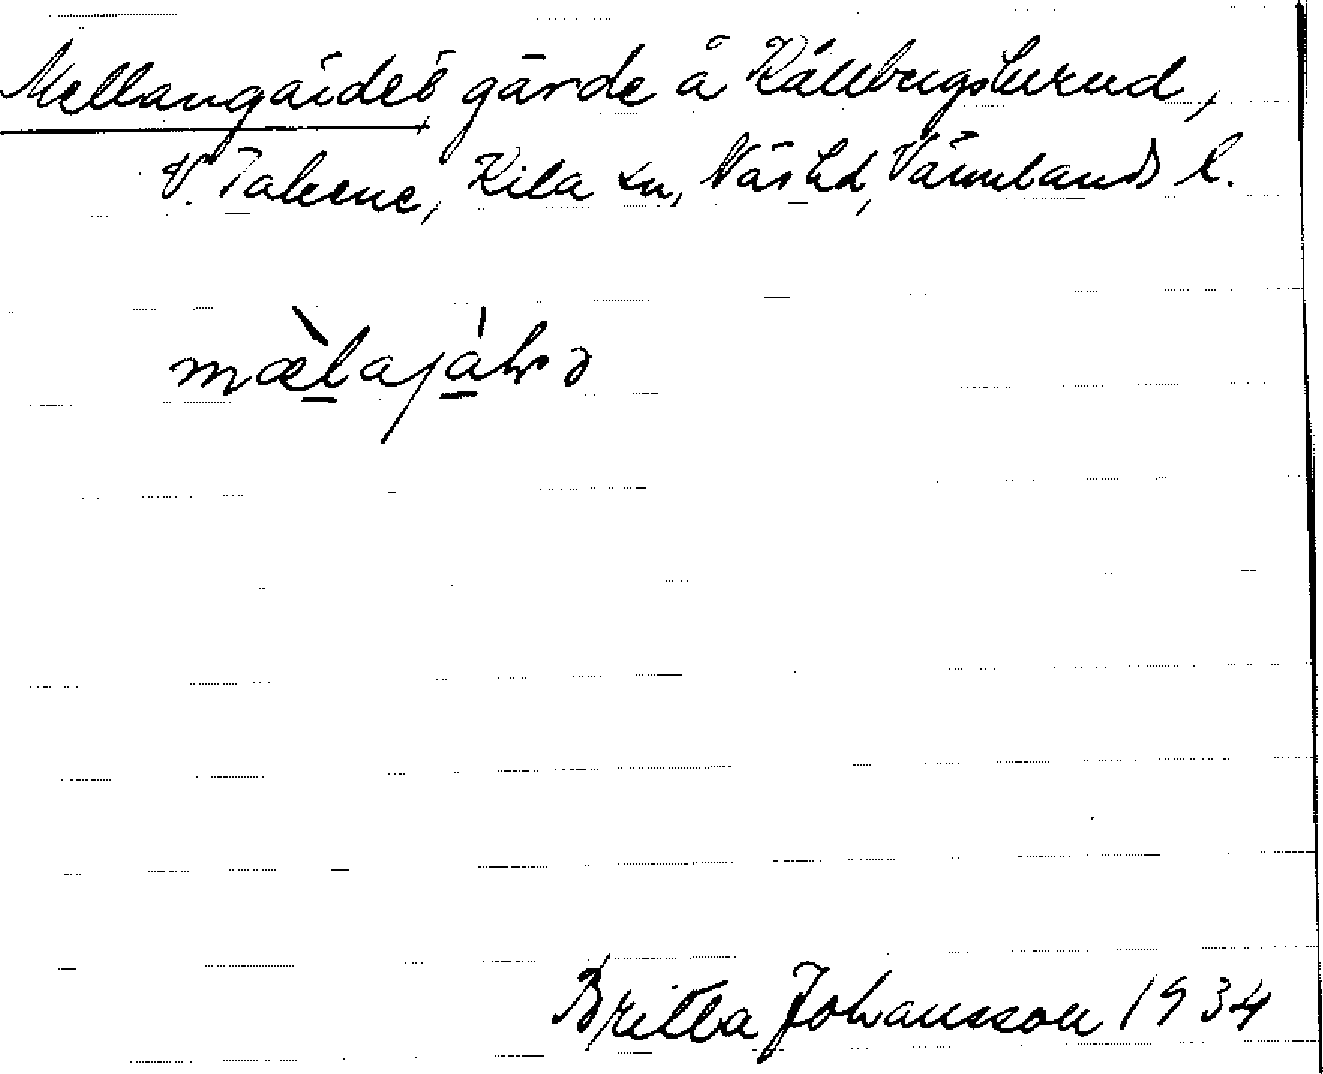 Mellangärdet gärde å Källbergsbukrud,
V. Takene, Kila sn, Näs hd, Värmlands l.
mæ̀lajáḷə
Britta Johansson 1934